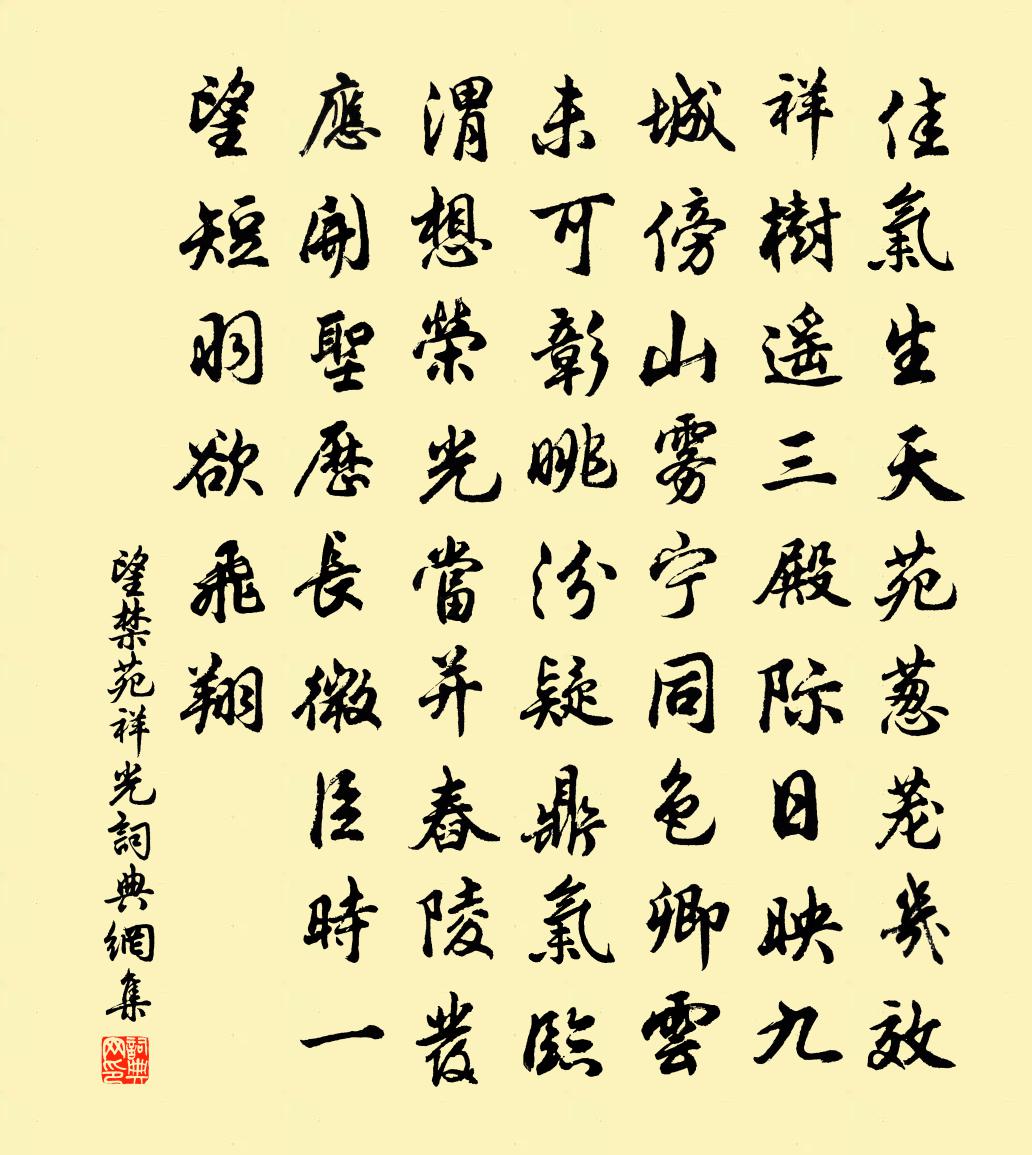 佳氣生天苑葱蘢幾效
祥樹遥三殿際日映九
城傍山雾宁同色卿雲
未可彰眺汾疑鼎氣臨
渭想榮光當并舂陵發
應開聖歷長微臣時一
望短羽欲飛翔
望禁苑祥光詞典網集
詞典网印